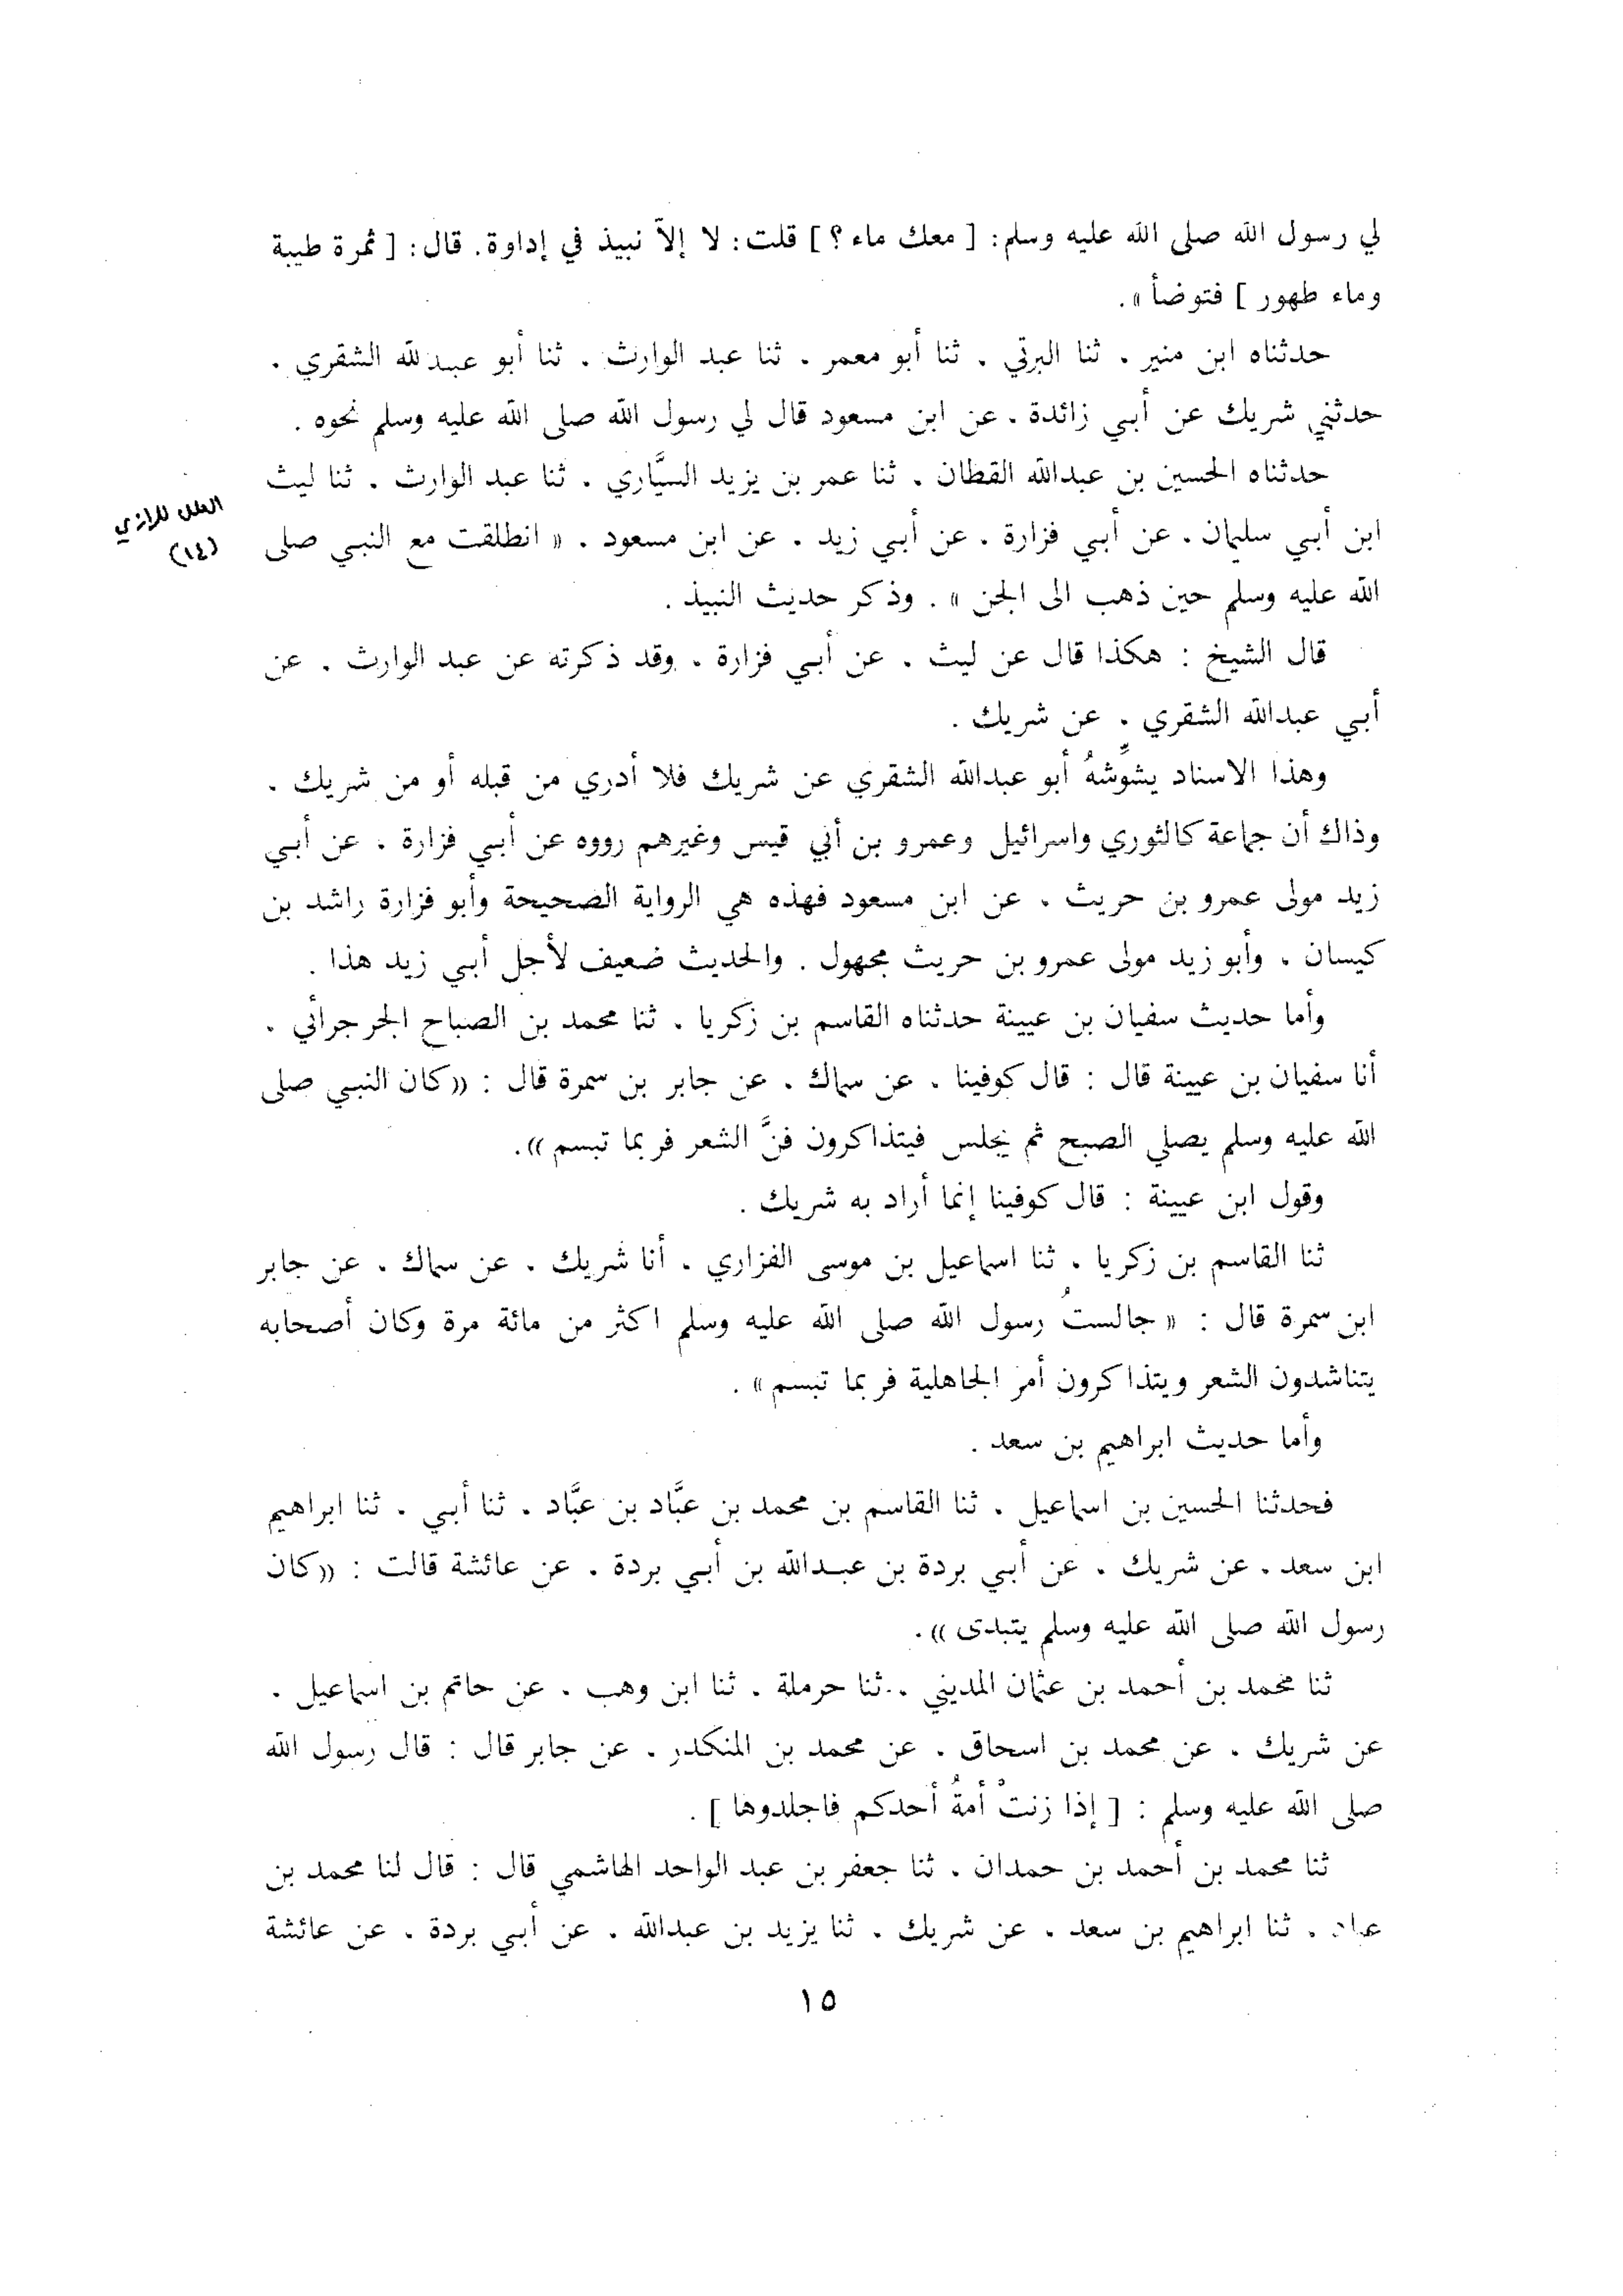 لي رسول الله صلى الله عليه وسلم: [ معك ماء ؟ ] قلت: لا إلاّ نبيذ في إداوة. قال: [ ثمرة طيبة
وماء طهور ] فتوضأ ».
حدثناه ابن منير ، ثنا البرتي ، ثنا أبو معمر ، ثنا عبد الوارث ، ثنا أبو عبدلله الشقري ،
حدثني شريك عن أبي زائدة ، عن ابن مسعود قال لي رسول الله صلى الله عليه وسلم نحوه .
حدثناه الحسين بن عبدالله القطان ، ثنا عمر بن يزيد السيَّاري ، ثنا عبد الوارث ، ثنا ليث
العلل للرازي
(١٤)
ابن أبي سليمان ، عن أبي فزارة ، عن أبي زيد ، عن ابن مسعود ، « انطلقت مع النبي صلى
الله عليه وسلم حين ذهب الى الجن » . وذكر حديث النبيذ .
قال الشيخ : هكذا قال عن ليث ، عن أبي فزارة ، وقد ذكرته عن عبد الوارث ، عن
أبي عبدالله الشقري ، عن شريك .
وهذا الاسناد يشوِّشهُ أبو عبدالله الشقري عن شريك فلا أدري من قبله أو من شريك ،
وذاك أن جماعة كالثوري واسرائيل وعمرو بن أبي قيس وغيرهم رووه عن أبي فزارة ، عن أبي
زيد مولى عمرو بن حريث ، عن ابن مسعود فهذه هي الرواية الصحيحة وأبو فزارة راشد بن
كيسان ، وأبو زيد مولى عمرو بن حريث مجهول . والحديث ضعيف لأجل أبي زيد هذا .
وأما حديث سفيان بن عيينة حدثناه القاسم بن زكريا ، ثنا محمد بن الصباح الجرجرائي ،
أنا سفيان بن عيينة قال : قال كوفينا ، عن سماك ، عن جابر بن سمرة قال : «كان النبي صلى
الله عليه وسلم يصلي الصبح ثم يجلس فيتذاكرون فنَّ الشعر فربما تبسم ».
وقول ابن عيينة : قال كوفينا إنما أراد به شريك .
ثنا القاسم بن زكريا ، ثنا اسماعيل بن موسى الفزاري ، أنا شريك ، عن سماك ، عن جابر
ابن سمرة قال : « جالستُ رسول الله صلى الله عليه وسلم اكثر من مائة مرة وكان أصحابه
يتناشدون الشعر ويتذاكرون أمر الجاهلية فربما تبسم » .
وأما حديث ابراهيم بن سعد .
فحدثنا الحسين بن اسماعيل ، ثنا القاسم بن محمد بن عبَّاد بن عبَّاد ، ثنا أبي ، ثنا ابراهيم
ابن سعد ، عن شريك ، عن أبي بردة بن عبدالله بن أبي بردة ، عن عائشة قالت : «كان
رسول الله صلى الله عليه وسلم يتبدى ».
ثنا محمد بن أحمد بن عثمان المديني ، ثنا حرملة ، ثنا ابن وهب ، عن حاتم بن اسماعيل ،
عن شريك ، عن محمد بن اسحاق ، عن محمد بن المنكدر ، عن جابر قال : قال رسول الله
صلى الله عليه وسلم : [ إذا زنتْ أمةُ أحدكم فاجلدوها ] .
ثنا محمد بن أحمد بن حمدان ، ثنا جعفر بن عبد الواحد الهاشمي قال : قال لنا محمد بن
عباد ، ثنا ابراهيم بن سعد ، عن شريك ، ثنا يزيد بن عبدالله ، عن أبي بردة ، عن عائشة
١٥